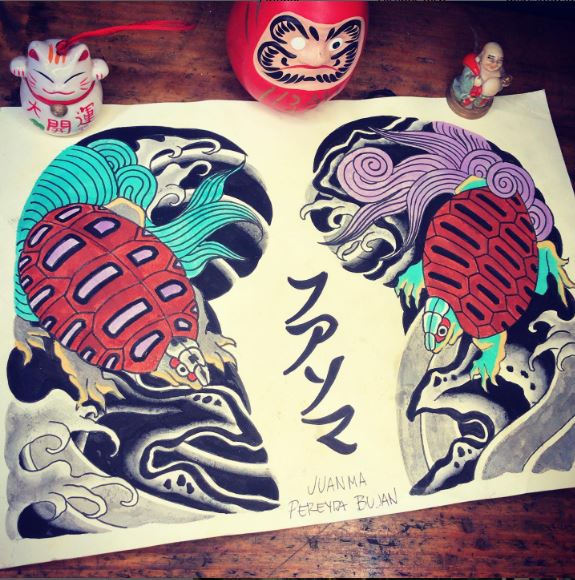 大開運
フアソマ
JUANMA
PEREYDA BUJAN